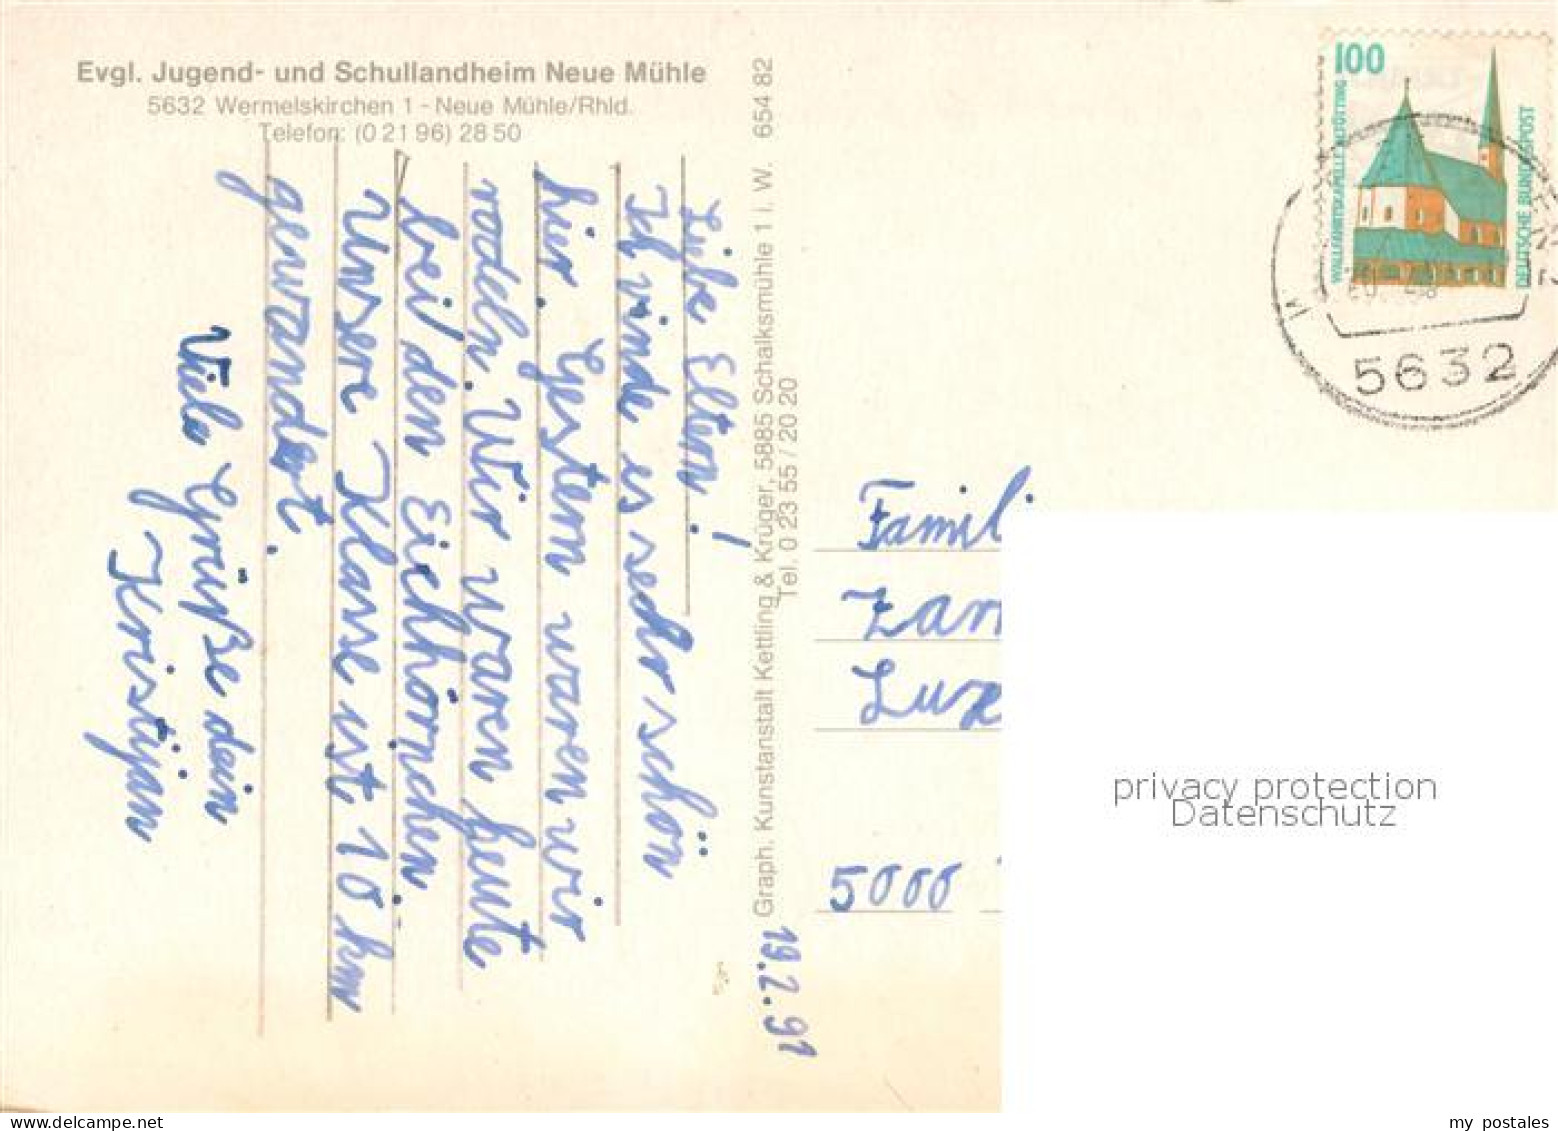 Evgl. Jugend- und Schullandheim Neue Mühle
5632 Wermelskirchen 1 - Neue Mühle/Rhld.
Telefon: (0 21 96) 28 50
19.2.91
Liebe Eltern!
Ich vinde es sehr schön
hier. Gestern waren wir
rodeln. Wir waren heute
bei den Eichhörnchen.
Unsere Klasse ist 10 km
gewandert.
Viele Grüße dein
Kristijan
Graph. Kunstanstalt Kettling & Krüger, 5885 Schalksmühle 1 i. W. 654 82
Tel. 0 23 55 / 20 20
100
WALLFAHRTSKAPELLE ALTÖTTING
DEUTSCHE BUNDESPOST
5632
Famili
Zam
Luxe
5000
privacy protection
Datenschutz
my postales